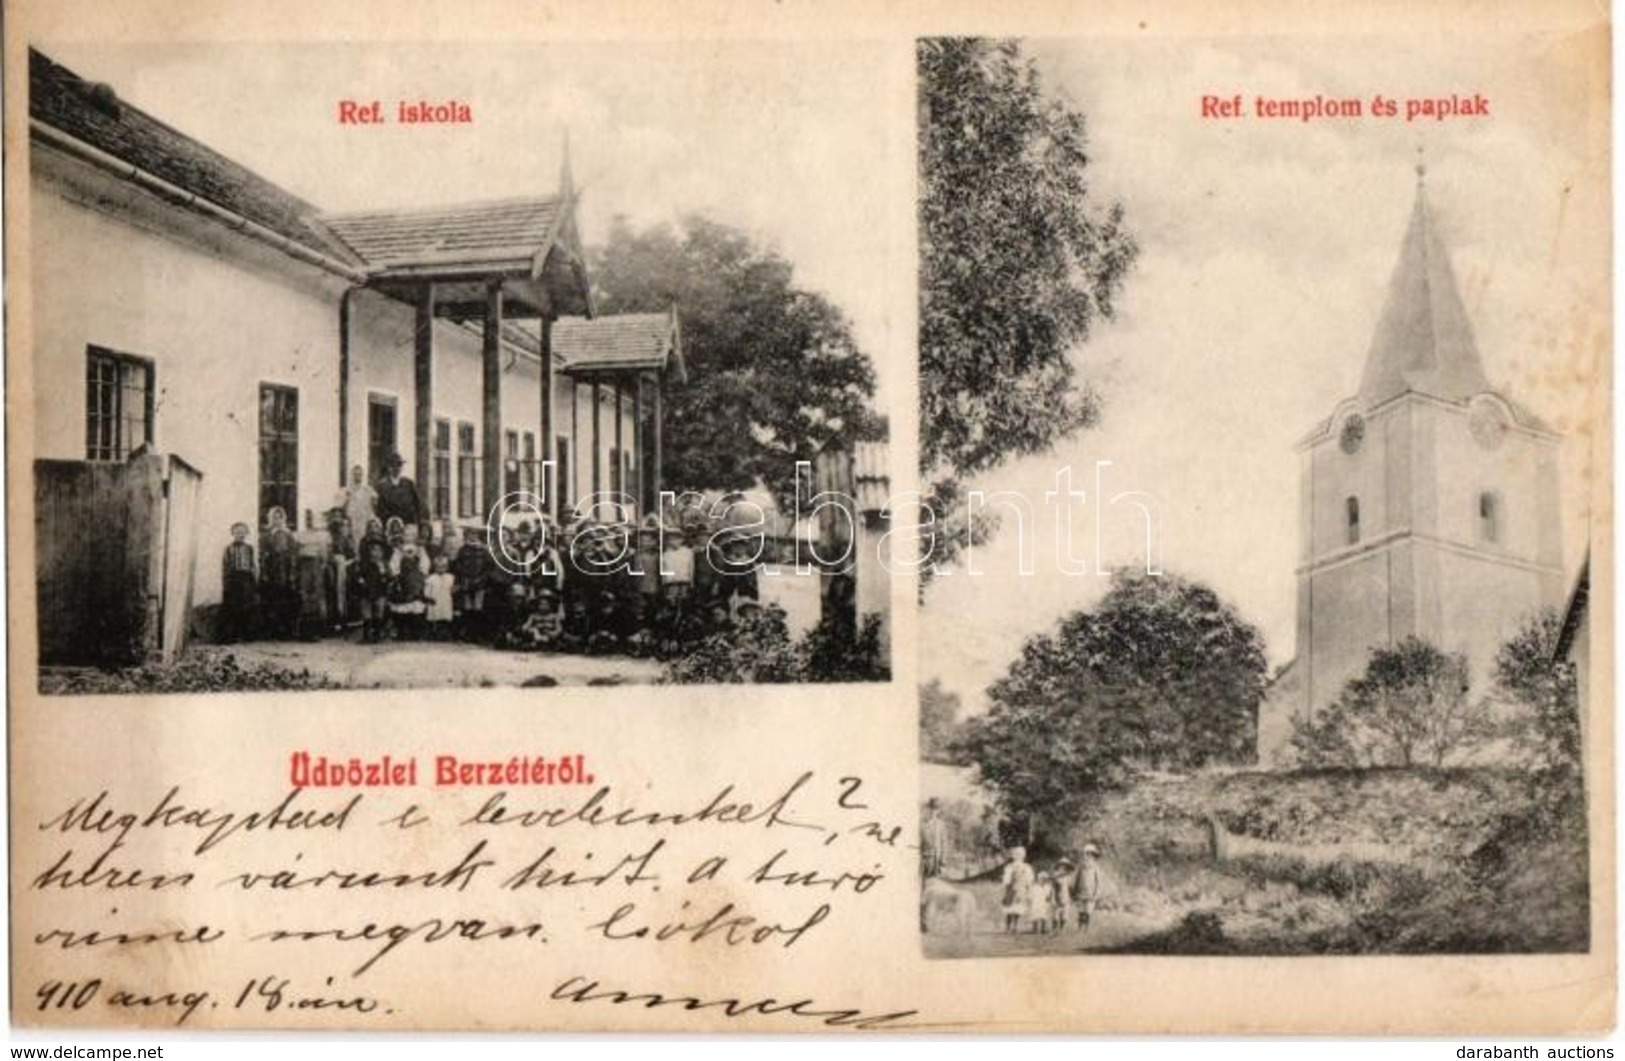 Ref. iskola
Ref. templom és paplak
Üdvözlet Berzétéről.
Megkaptad e leveleinket?, ne-
hezen várunk hirt. a turó
megvan. Csókol
910 aug. 18.án.
darabanth
delcampe.net
darabanth auctions